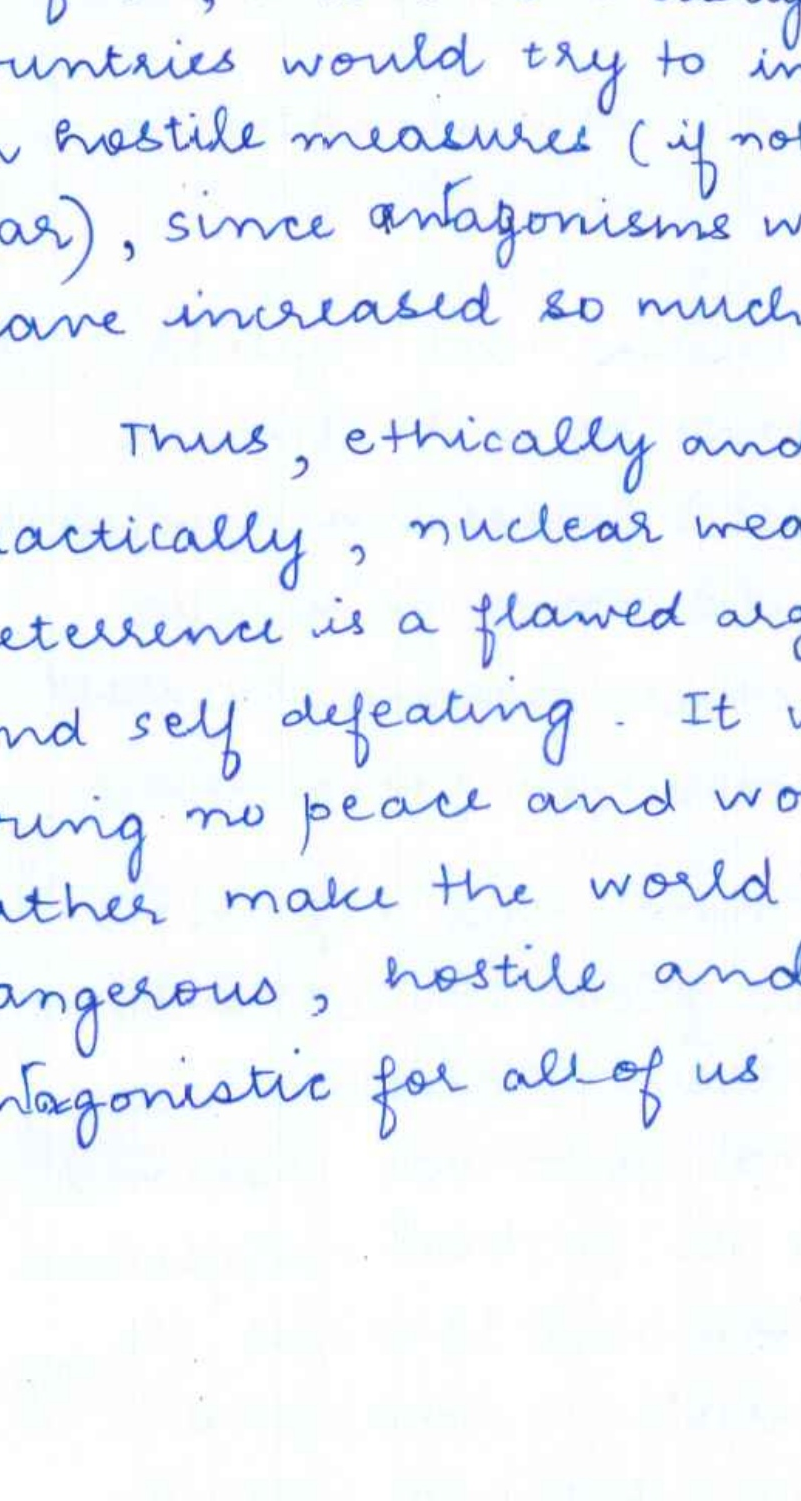 untries would try to in
hostile measures (if not
ar), since antagonisms w
ave increased so much
Thus, ethically and
actically, nuclear wea
eterrence is a flawed arg
nd self defeating. It w
ring no peace and wo
ather make the world
angerous, hostile and
ntagonistic for all of us